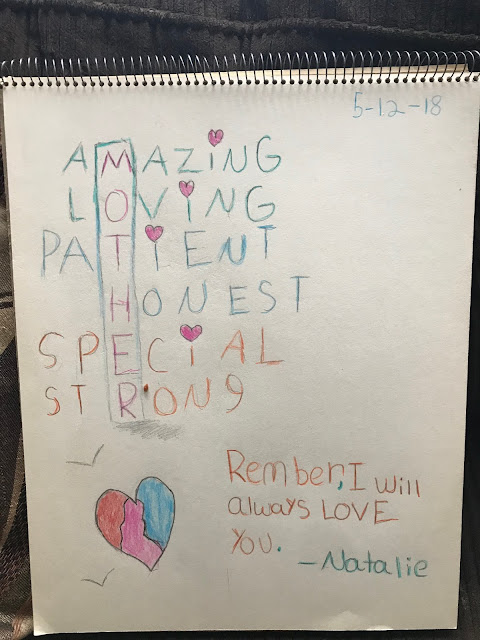 5-12-18
AMAZiNG
LOViNG
PATiENT
HONEST
SPECiAL
STRONG
Rember, I will
always LOVE
YOU.
-Natalie